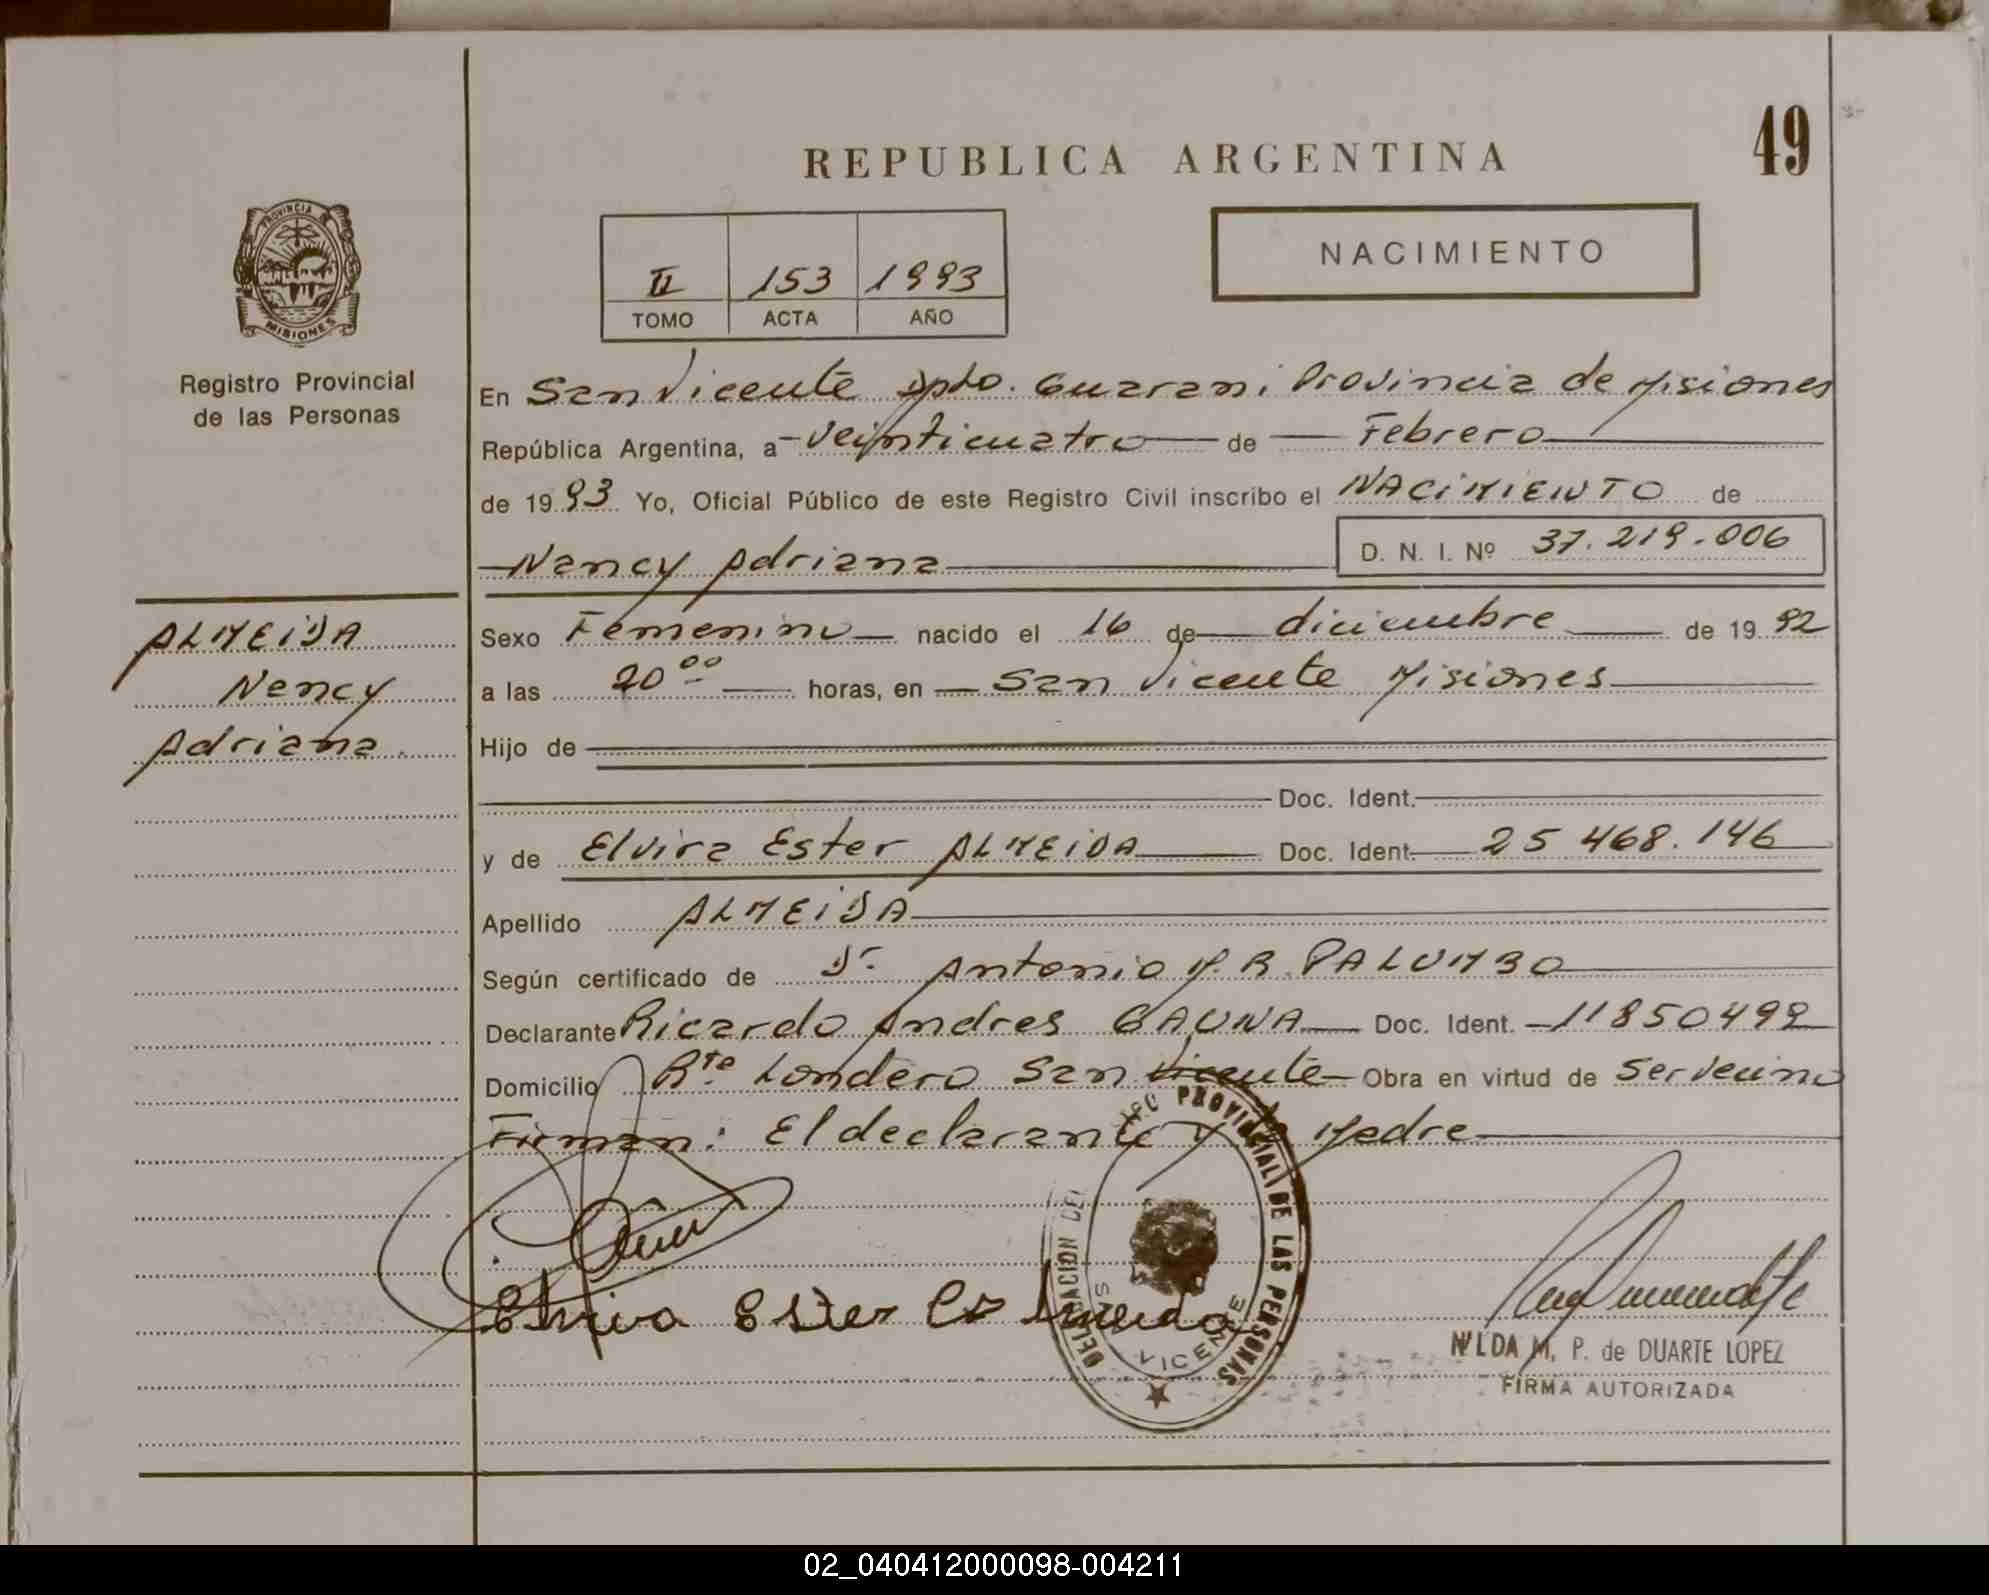 49
REPUBLICA ARGENTINA
PROVINCIA DE
MISIONES
Registro Provincial
de las Personas
II 153 1993
TOMO ACTA AÑO
NACIMIENTO
En San Vicente Dpto. Guarani Provincia de Misiones
República Argentina, a veinticuatro de Febrero
de 1993 Yo, Oficial Público de este Registro Civil inscribo el NACIMIENTO de
Nancy Adriana D. N. I. Nº 37.219.006
ALMEIDA
Nancy
Adriana.
Sexo Femenino nacido el 16 de diciembre de 1992
a las 20 00 horas, en San Vicente Misiones
Hijo de
Doc. Ident.
y de Elvira Ester ALMEIDA Doc. Ident. 25 468.146
Apellido ALMEIDA
Según certificado de Dr. Antonio M. R. PALUMBO
Declarante Ricardo Andres GAUNA Doc. Ident. 11850499
Domicilio Rte Londero San Vicente Obra en virtud de Ser vecino
Firman: El declarante y Madre
Elvira Ester
DELEGACION DEL PROVINCIAL DE LAS PERSONAS
SAN VICENTE
NILDA M. P. de DUARTE LOPEZ
FIRMA AUTORIZADA
02_040412000098-004211